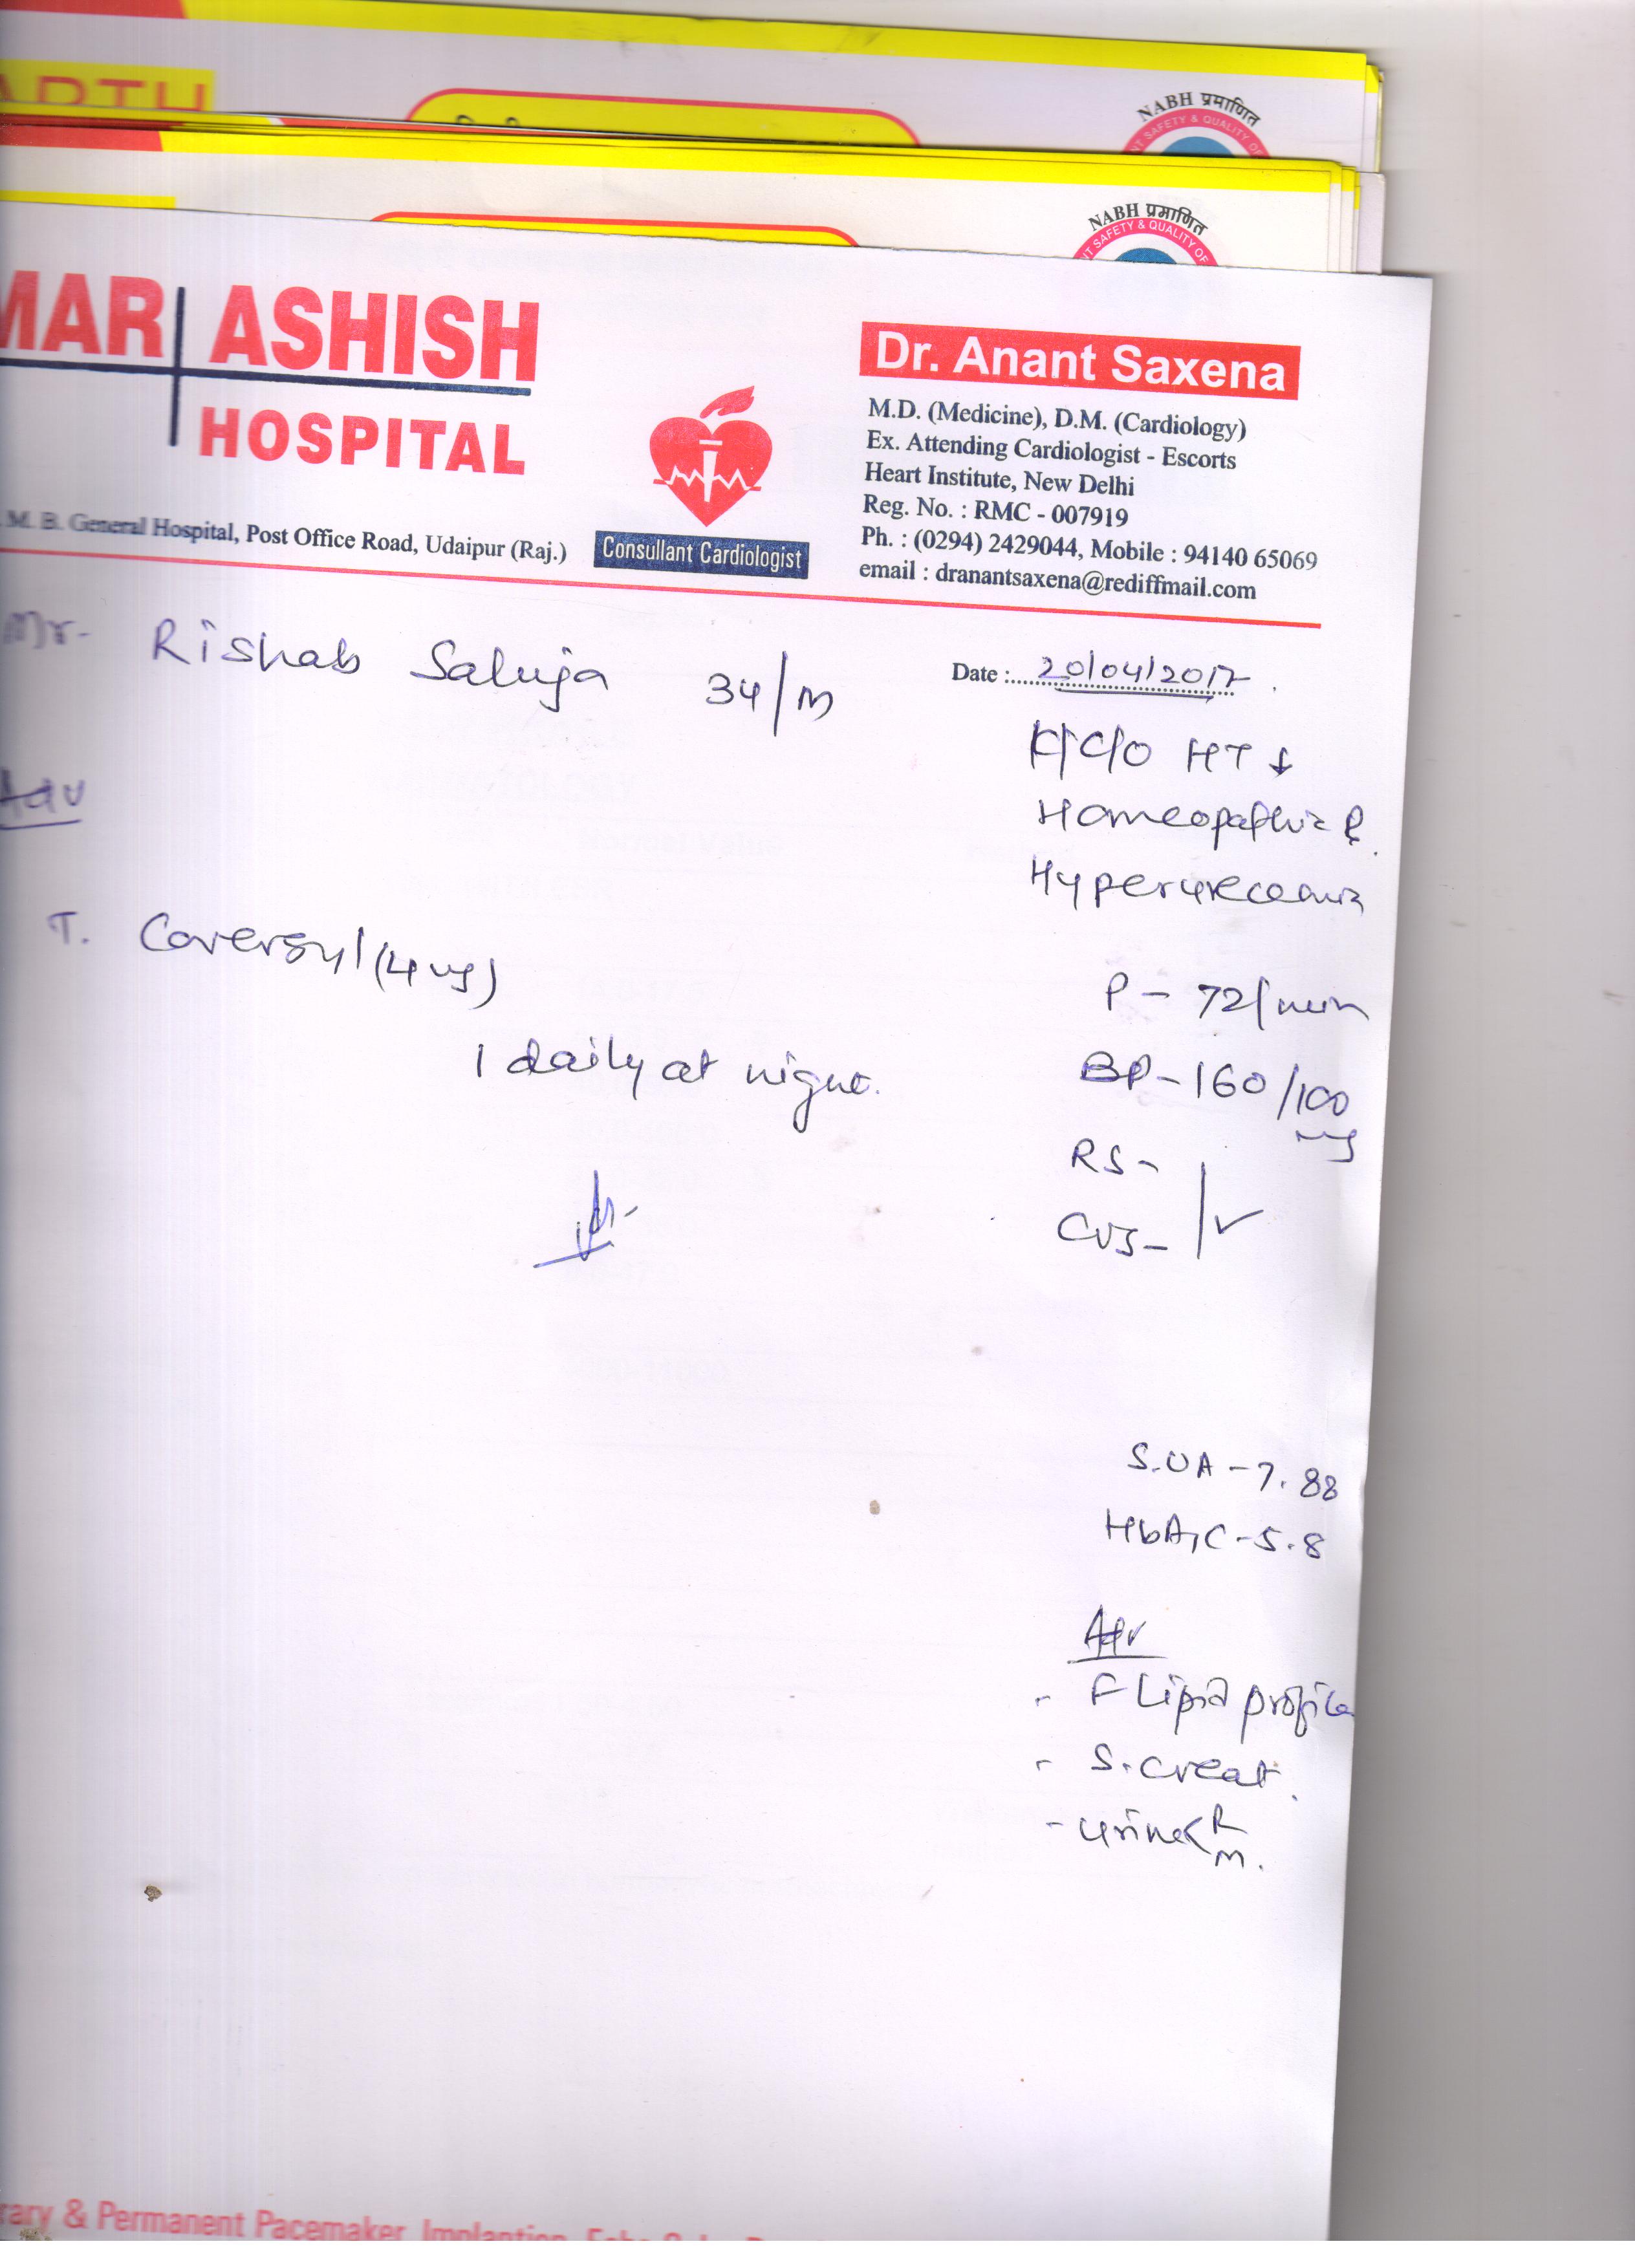 ARTH
NABH प्रमाणित
SAFETY & QUALITY OF
NABH प्रमाणित
SAFETY & QUALITY OF
MAR ASHISH
HOSPITAL
M. B. General Hospital, Post Office Road, Udaipur (Raj.)
Consullant Cardiologist
Dr. Anant Saxena
M.D. (Medicine), D.M. (Cardiology)
Ex. Attending Cardiologist - Escorts
Heart Institute, New Delhi
Reg. No. : RMC - 007919
Ph. : (0294) 2429044, Mobile : 94140 65069
email : dranantsaxena@rediffmail.com
Mr. Rishab Saluja 34/M
Date : 20/04/2017
K/C/O HT ↓
Homeopathic ℞
Hyperureceamia
Adv
T. Coversyl (4mg)
1 daily at night.
P - 72/min
BP - 160/100
mg
RS -
CVS -
S.UA - 7.88
HbA1C - 5.8
Adv
- F Lipid profile
- S. Creat.
- Urine R
M.
& Permanent Pacemaker Implantion,